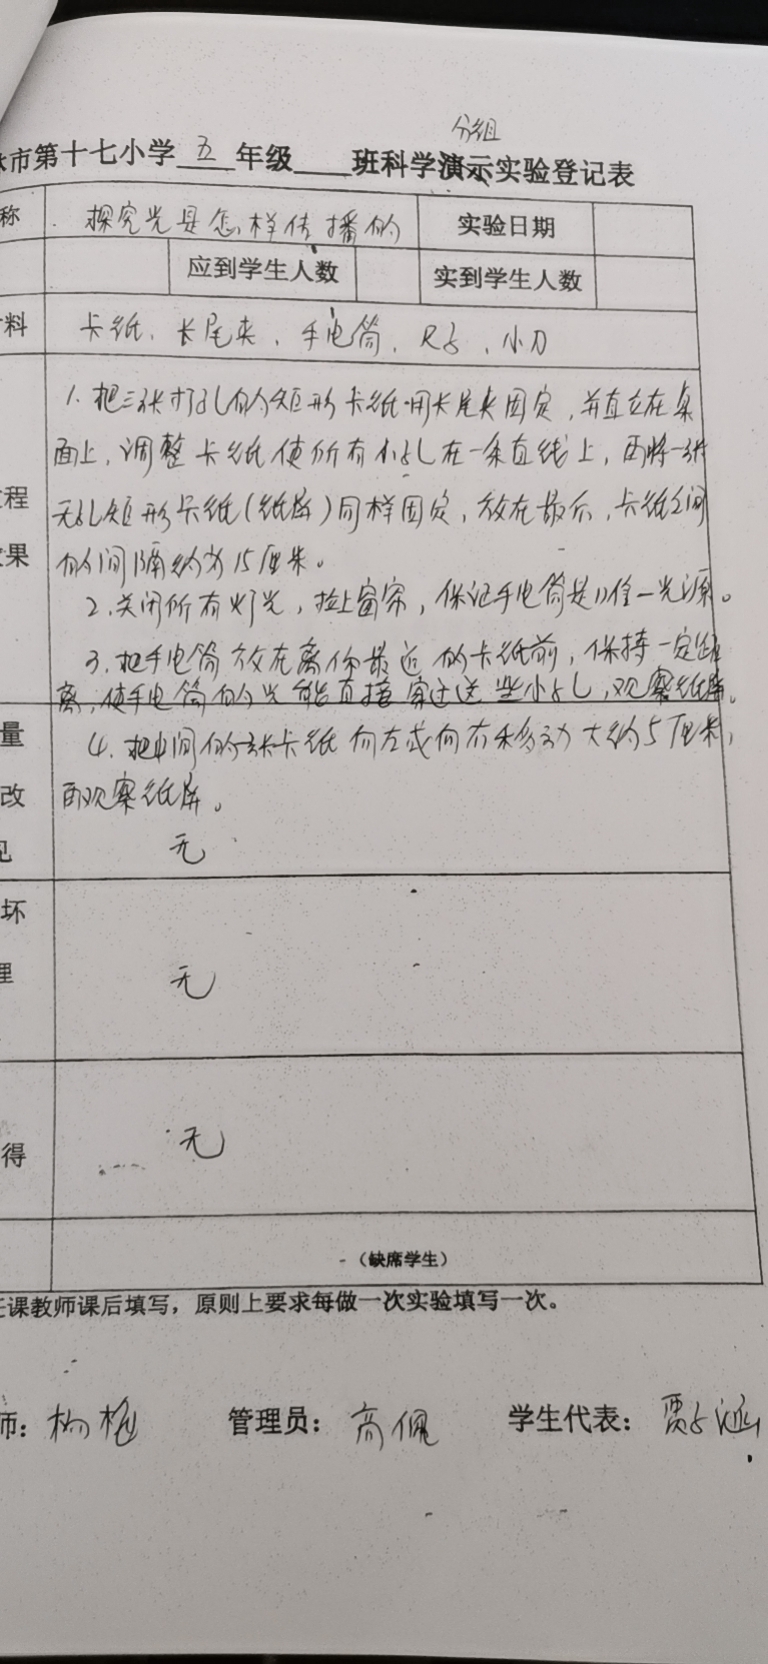 分组
市第十七小学 五 年级 班科学演示实验登记表
称 探究光是怎样传播的 实验日期
应到学生人数 实到学生人数
料 卡纸、长尾夹、手电筒、尺子、小刀
1.把三张打孔的矩形卡纸用长尾夹固定,并直立在桌
面上,调整卡纸使所有小孔在一条直线上,再将一张
无孔矩形卡纸(纸屏)同样固定,放在最后,卡纸之间
程
的间隔约为15厘米。
果
2.关闭所有灯光,拉上窗帘,保证手电筒是唯一光源。
3.把手电筒放在离你最近的卡纸前,保持一定距
离,使手电筒的光能直接穿过这些小孔,观察纸屏。
量 4.把中间的张卡纸向左或向右移动大约5厘米,
改 再观察纸屏。
见 无
坏
理 无
得 无
(缺席学生)
任课教师课后填写,原则上要求每做一次实验填写一次。
师: 管理员: 高佩 学生代表: 贾子涵